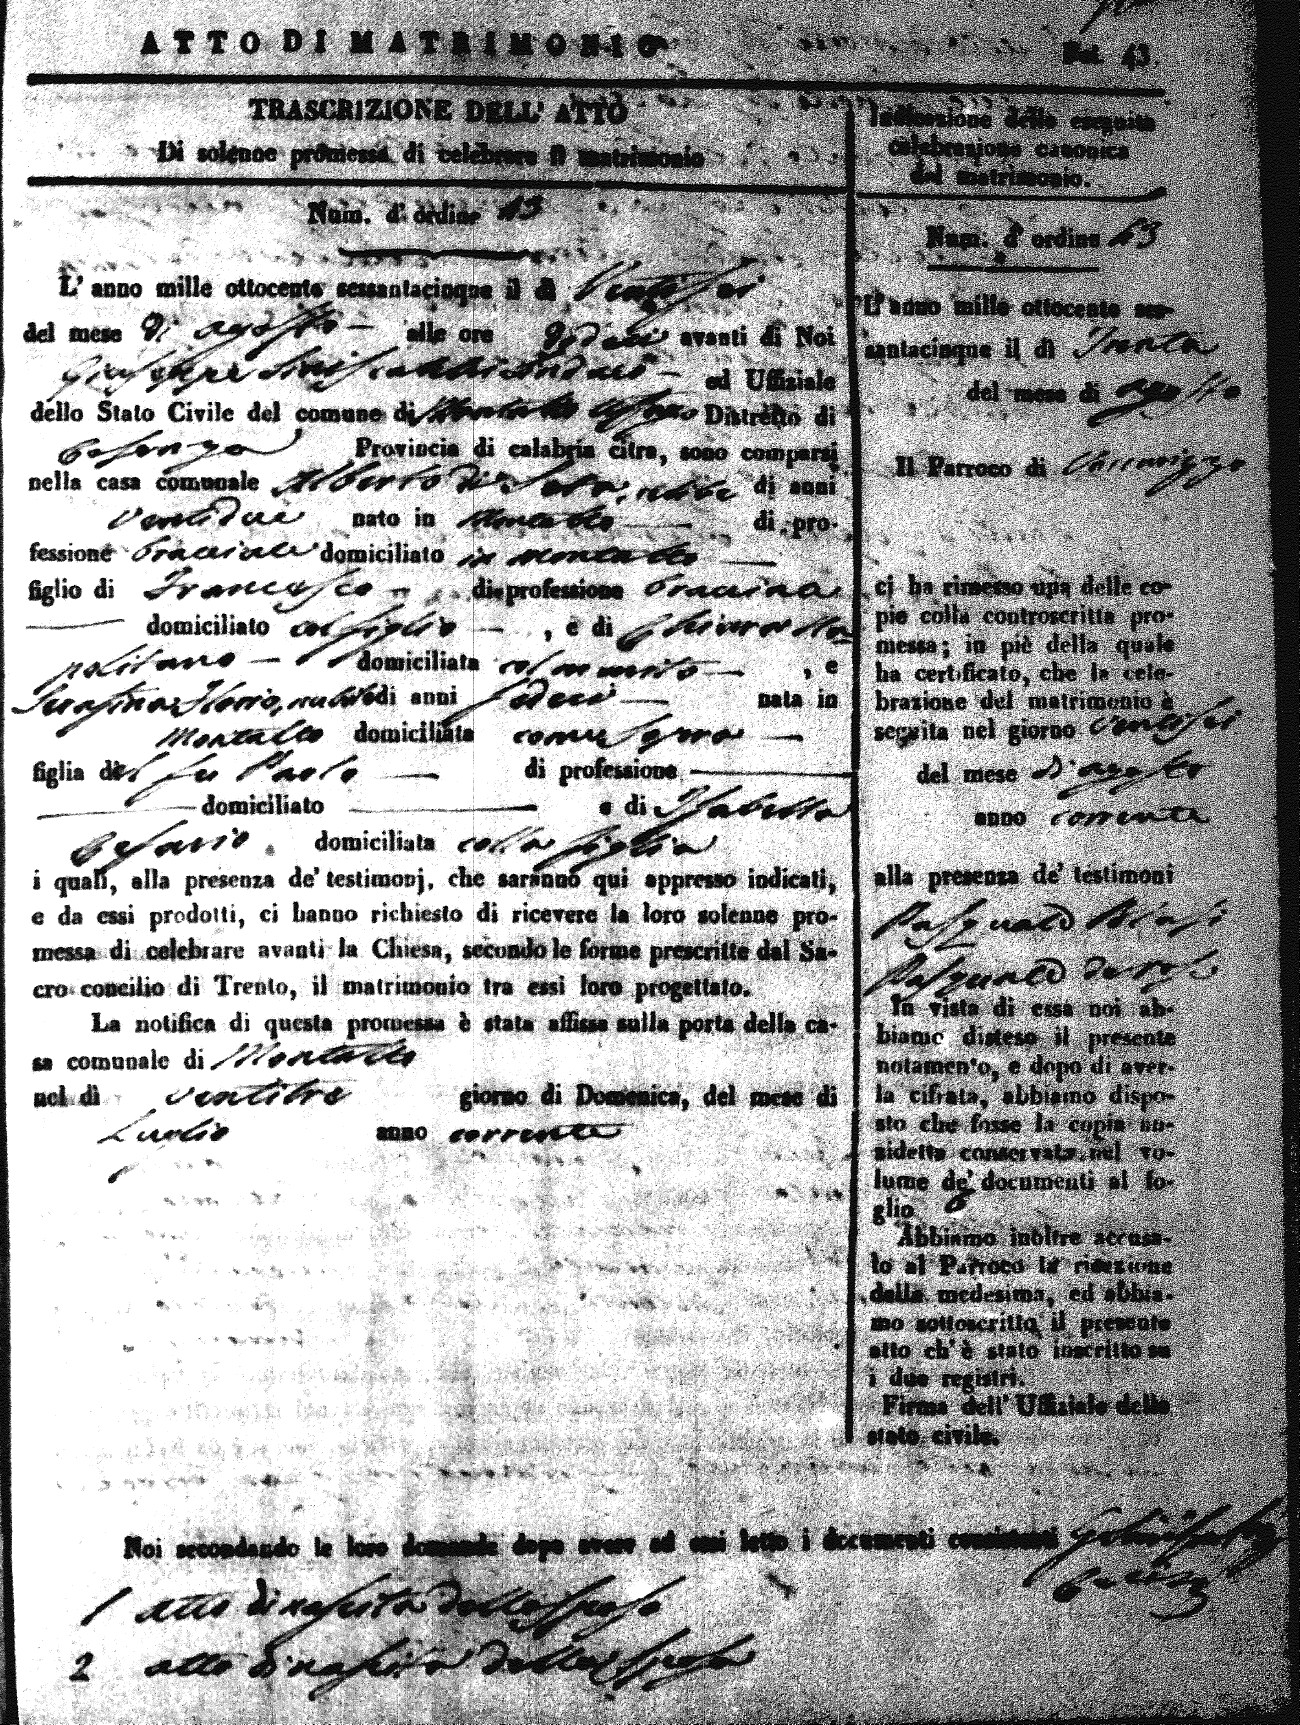 ATTO DI MATRIMONIO
Fol. 43
TRASCRIZIONE DELL' ATTO
Di solenne promessa di celebrare il matrimonio
Num. d' ordine 43
L' anno mille ottocento sessantacinque il dì Ventisei
del mese di agosto alle ore sedeci avanti di Noi
Giuseppe Sindaco ed Uffiziale
dello Stato Civile del comune di Montalto Uffugo Distretto di
Cosenza Provincia di calabria citra, sono comparsi
nella casa comunale Alberto di Seta, celibe di anni
ventidue nato in Montalto di pro-
fessione bracciale domiciliato in Montalto
figlio di Francesco di professione
domiciliato col figlio , e di Chiara Na-
politano domiciliata col marito , e
Serafina Iorio, nubile di anni sedeci nata in
Montalto domiciliata come sopra
figlia del fu Paolo di professione
domiciliato e di Isabella
Cesario domiciliata colla figlia
i quali, alla presenza de' testimonj, che saranno qui appresso indicati,
e da essi prodotti, ci hanno richiesto di ricevere la loro solenne pro-
messa di celebrare avanti la Chiesa, secondo le forme prescritte dal Sa-
cro concilio di Trento, il matrimonio tra essi loro progettato.
La notifica di questa promessa è stata affissa sulla porta della ca-
sa comunale di Montalto
nel dì ventitre giorno di Domenica, del mese di
Luglio anno corrente
Indicazione della eseguita
celebrazione canonica
del matrimonio.
Num. d' ordine 43
L' anno mille ottocento ses-
santacinque il dì Trenta
del mese di agosto
Il Parroco di Vaccarizzo
ci ha rimesso una delle co-
pie colla controscritta pro-
messa; in piè della quale
ha certificato, che la cele-
brazione del matrimonio è
seguita nel giorno ventisei
del mese d'agosto
anno corrente
alla presenza de' testimoni
Pasquale Blasi
Pasquale de
In vista di essa noi ab-
biamo disteso il presente
notamento, e dopo di aver-
la cifrata, abbiamo dispo-
sto che fosse la copia an-
sidetta conservata nel vo-
lume de' documenti al fo-
glio 6
Abbiamo inoltre accusa-
to al Parroco la ricezione
della medesima, ed abbia-
mo sottoscritto il presente
atto ch' è stato inscritto su
i due registri.
Firma dell' Uffiziale dello
stato civile.
Noi secondando le loro domande dopo avere ad essi letto i documenti consistenti
1 atto di nascita dello sposo
2 atto di nascita della sposa